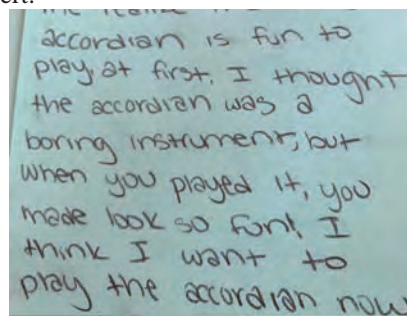 accordian is fun to
play. at first, I thought
the accordian was a
boring instrument, but
when you played it, you
made look so fun! I
think I want to
play the accordian now